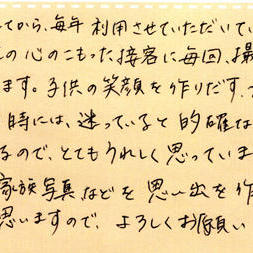 てから、毎年 利用させていただいてい
の心のこもった接客に毎回、撮
ます。子供の笑顔を作りだす、
時には、迷っていると的確な
るので、とてもうれしく思っていま
家族写真などを思い出を作
思いますので、よろしくお願い